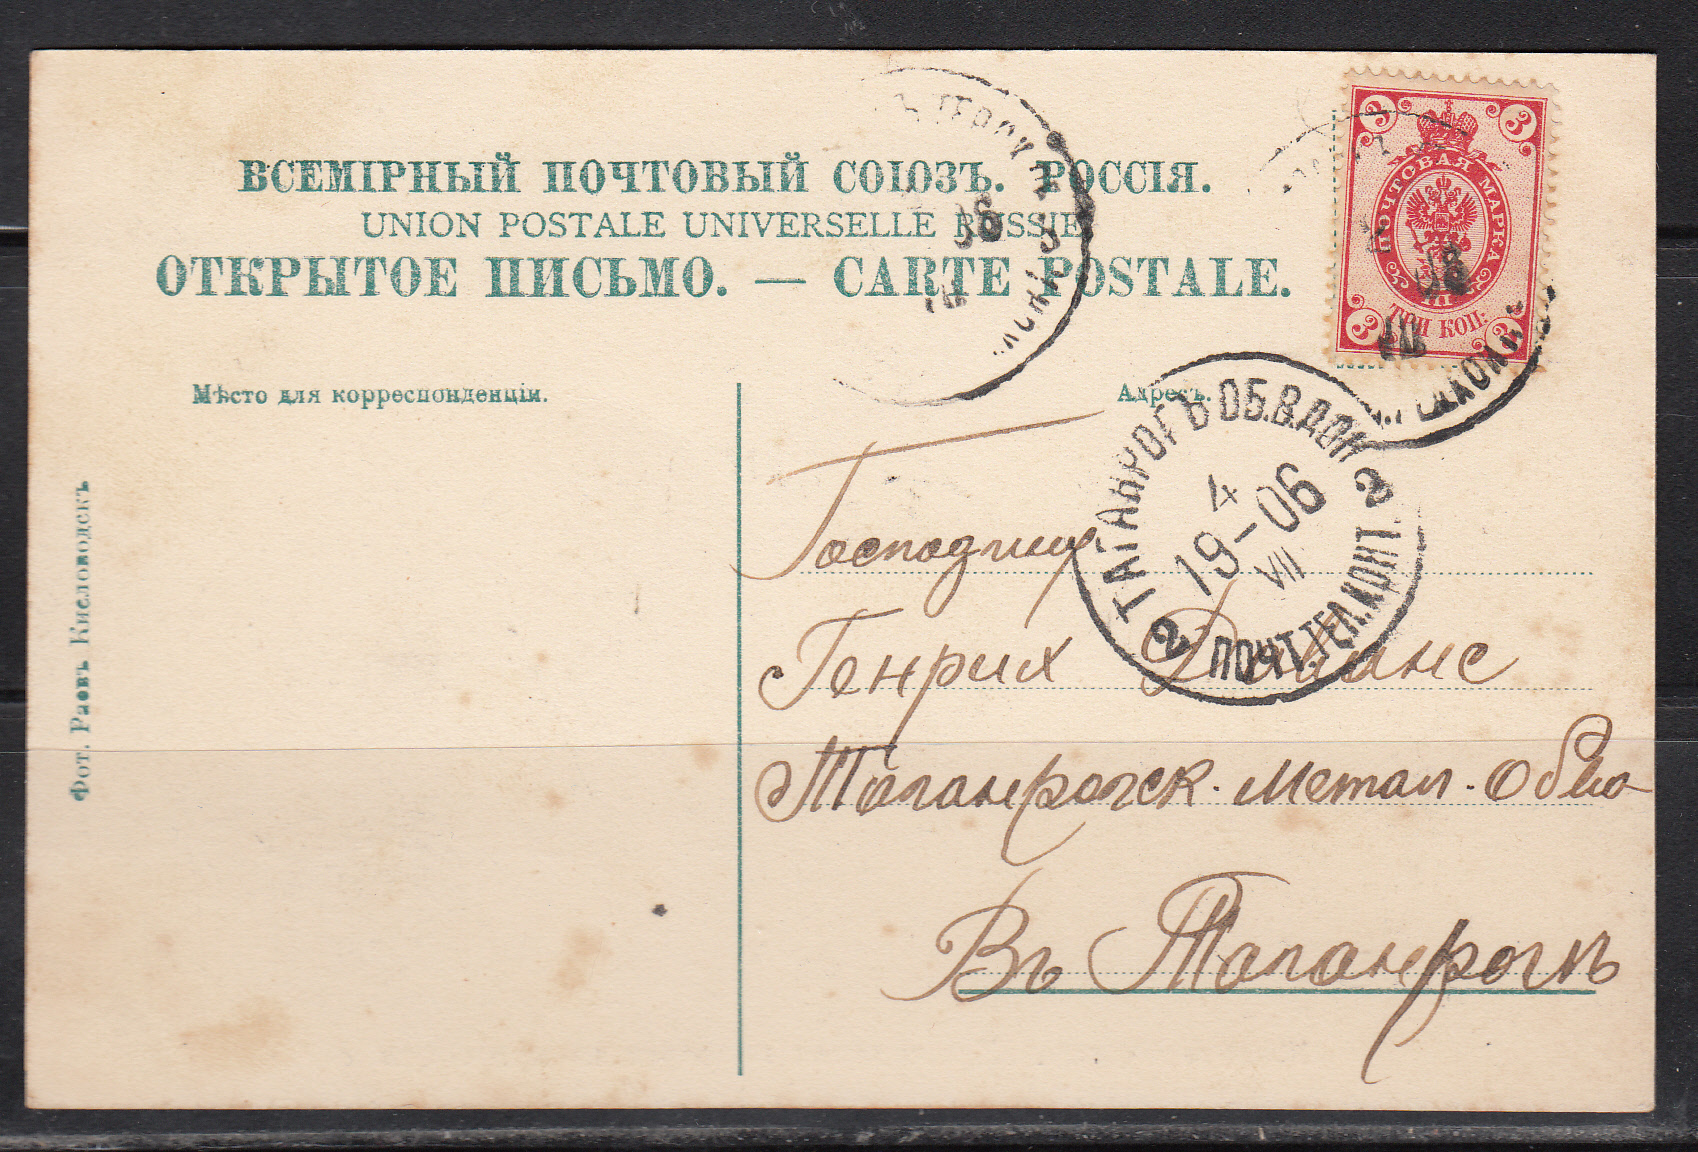 ВСЕМІРНЫЙ ПОЧТОВЫЙ СОЮЗЪ. РОССІЯ.
UNION POSTALE UNIVERSELLE RUSSIE
ОТКРЫТОЕ ПИСЬМО. — CARTE POSTALE.
3 3
ПОЧТОВАЯ МАРКА
3 3
ТРИ КОП:
Мѣсто для корреспонденціи.
Адресъ.
ТАГАНРОГЪ ОБ.В.ДОН
2 ПОЧТ.ТЕЛ.КОНТ. 2
4
19-06
VII
Господину
Генрих
Таганрогск. Метал. Общ
Въ Таганрогѣ
Фот. Раевъ Кисловодскъ